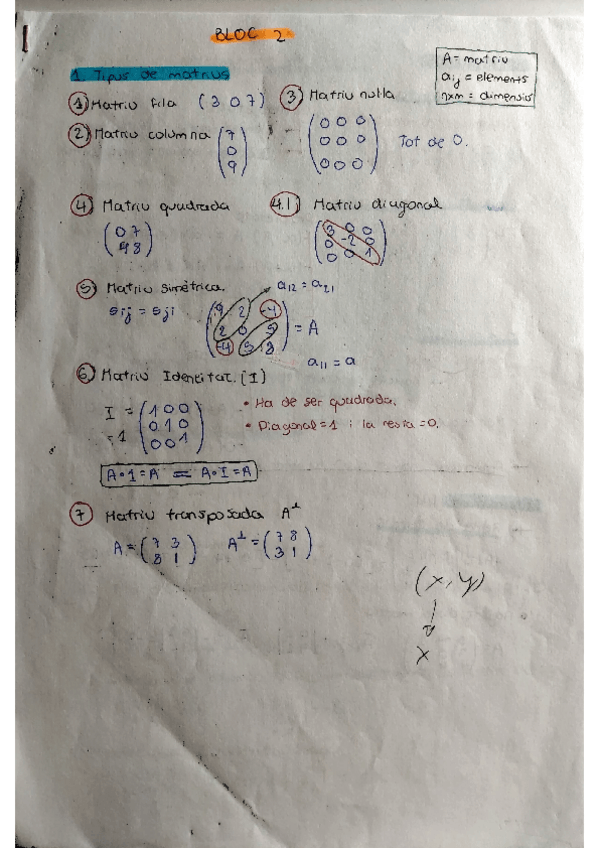 BLOC 2
A = matriu
aij = elements
nxm = dimensió
1. Tipus de matrius
1) Matriu fila (3 0 7)
2) Matriu columna
7
0
9
3) Matriu nul·la
0 0 0
0 0 0
0 0 0
Tot de 0.
4) Matriu quadrada
0 7
4 8
4.1) Matriu diagonal
3 0 0
0 -2 0
0 0 1
5) Matriu simètrica.
aij = aji
9 2 -4
2 0 5
-4 5 8
= A
a12 = a21
a11 = a
6) Matriu Identitat. (I)
I =
= 1
1 0 0
0 1 0
0 0 1
• Ha de ser quadrada.
• Diagonal = 1 i la resta = 0.
A·1 = A = A·I = A
7) Matriu transposada A⊥
A =
7 3
8 1
A⊥ =
7 8
3 1
(x,y)
x